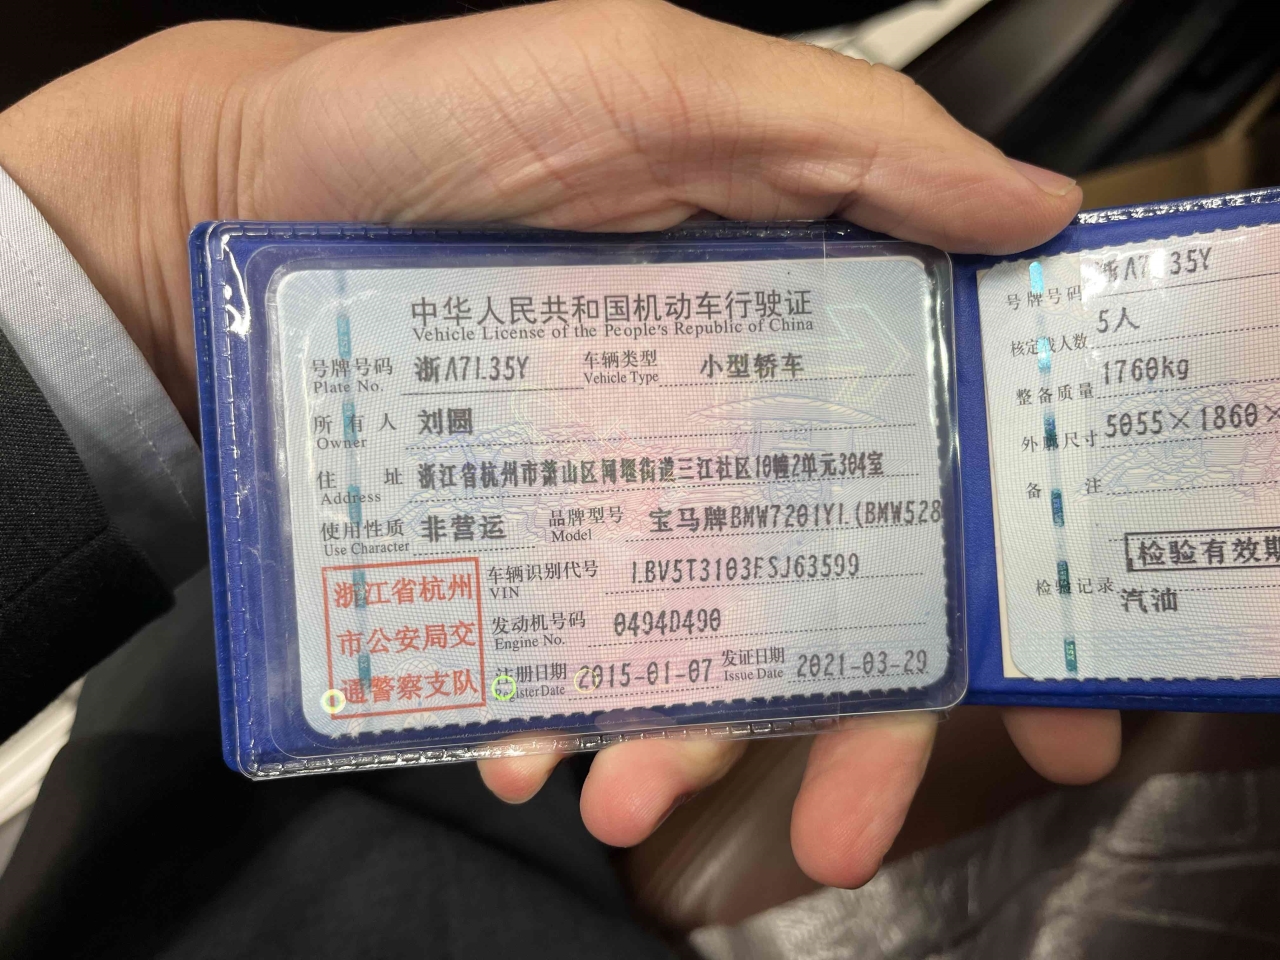 中华人民共和国机动车行驶证
Vehicle License of the People's Republic of China
号牌号码 浙A7L35Y 车辆类型 小型轿车
Plate No. Vehicle Type
所有人 刘圆
Owner
住址 浙江省杭州市萧山区闻堰街道三江社区10幢2单元304室
Address
使用性质 非营运 品牌型号 宝马牌BMW7201YL(BMW528
Use Character Model
浙江省杭州
市公安局交
通警察支队
车辆识别代号 LBV5T3103FSJ63599
VIN
发动机号码 0494D490
Engine No.
注册日期 2015-01-07 发证日期 2021-03-29
Register Date Issue Date
号牌号码 浙A7L35Y
核定载人数 5人
整备质量 1760kg
外廓尺寸 5055×1860×
备注
检验有效期
检验记录 汽油